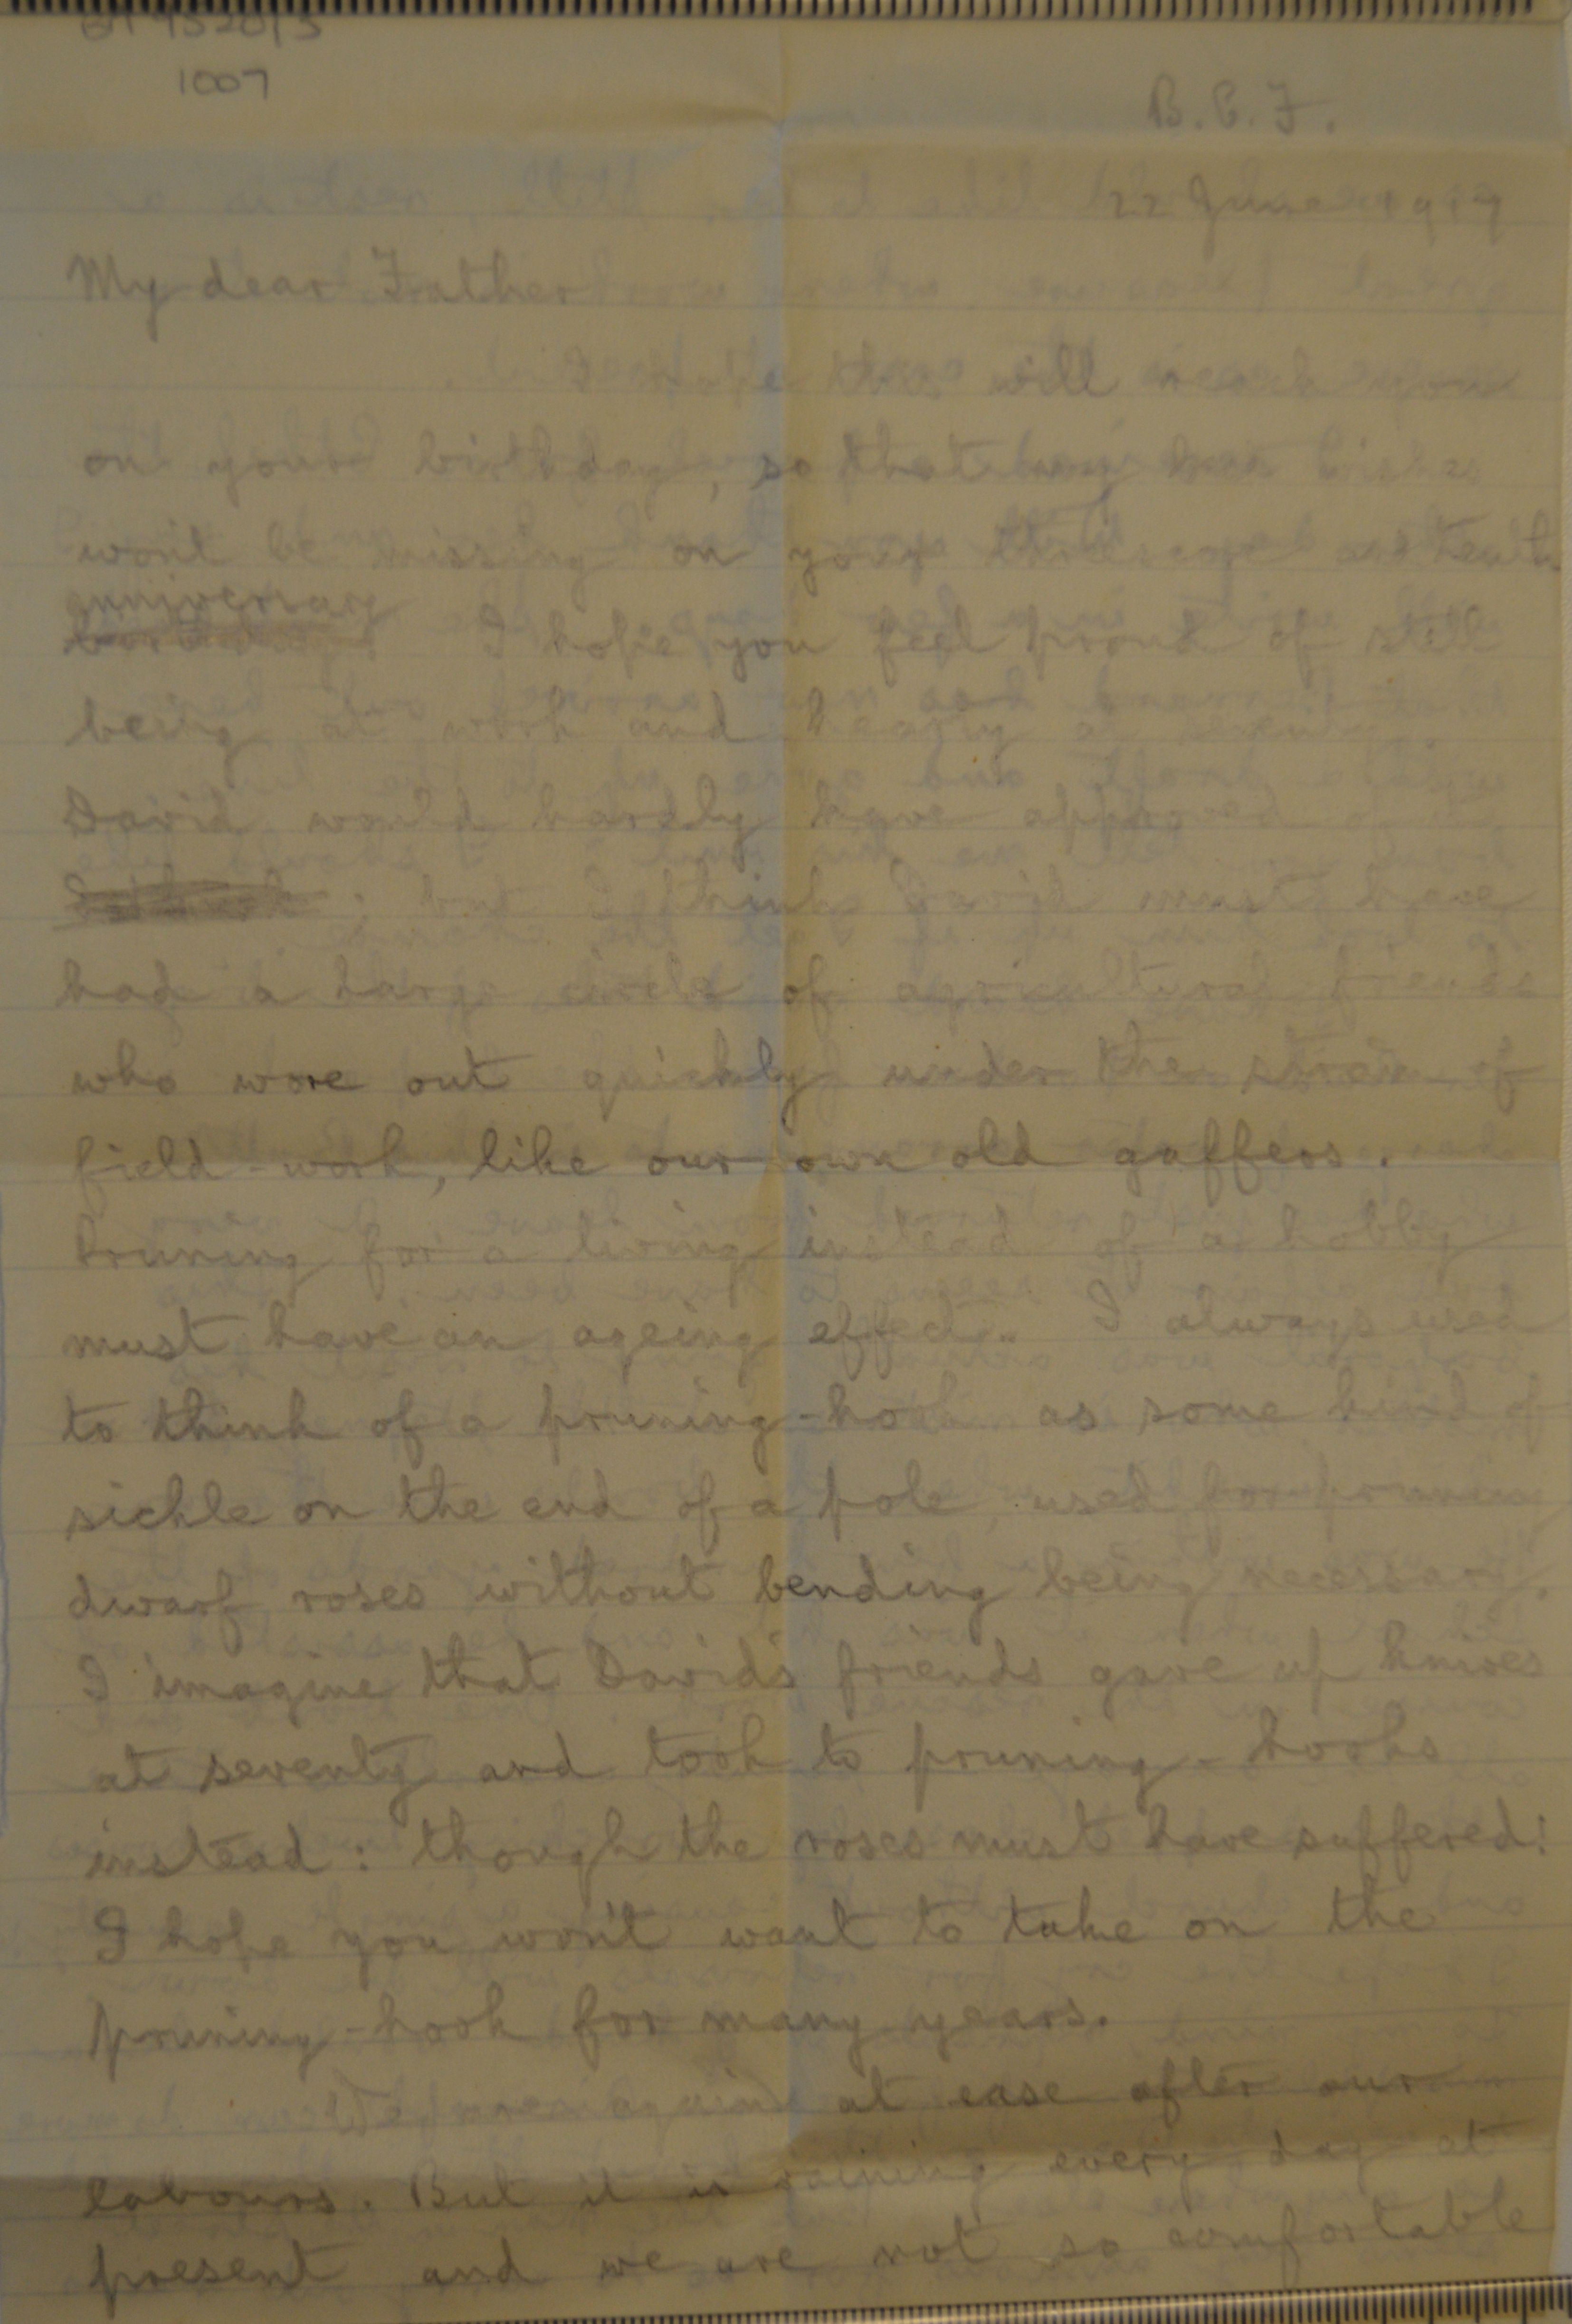 1007
B.E.F.
22 June 1917
My dear Father
I hope this will reach you
on your birthday, so that my wishes
won't be missing on your threescore and tenth
anniversary
I hope you feel proud of still
being at work and hearty at seventy.
David would hardly have approved of it
; but I think David must have
had a large circle of agricultural friends
who wore out quickly under the strain of
field-work, like our own old gaffers.
Pruning for a living instead of a hobby
must have an ageing effect. I always used
to think of a pruning-hook as some kind of
sickle on the end of a pole, used for pruning
dwarf roses without bending being necessary.
I imagine that David's friends gave up knives
at seventy and took to pruning-hooks
instead: though the roses must have suffered:
I hope you won't want to take on the
pruning-hook for many years.
We are again at ease after our
labours. But it is raining every day at
present and we are not so comfortable